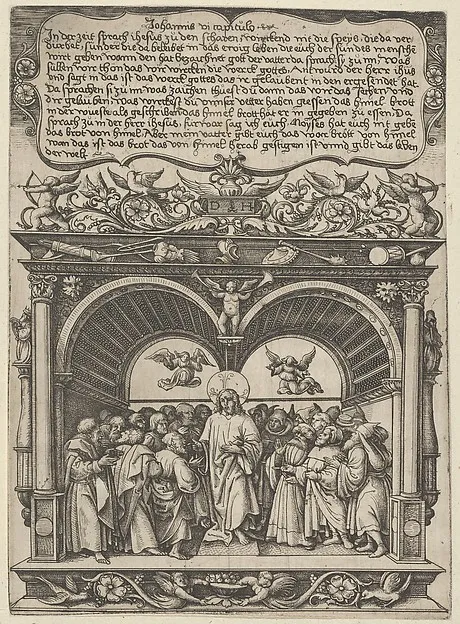 Johannis vi capitulo
In der zeit sprach ihesus zu den scharen wirckend nit die speys die da ver
durbet, sunder die da beleibet in das ewig leben die euch der sun des menschen
wirt geben wann den hat bezaichnet gott der vatter da sprachē sy zu im was
sullen wir thon das wir wircken die werck gottes Antwurt der herr ihūs
und sagt in das ist das werck gottes das ir gelaubēt in den er gesendet hat
Da sprachen si zu im was zaichen thuest du dann das wir das sehen vnd
dir gelauben was wirckest du vnnser vetter haben gessen das himel brott
in der wueste als geschriben das himel brott hat er in gegeben zu essen Da
sprach zu in der herr ihesus, fürwar sag ich euch Moyses hat euch nit gebē
das brot von himel Aber mein vatter gibt euch das war brott von himel
wan das ist das brot das von himel herab gestigen ist vnnd gibt das leben
der welt
D H